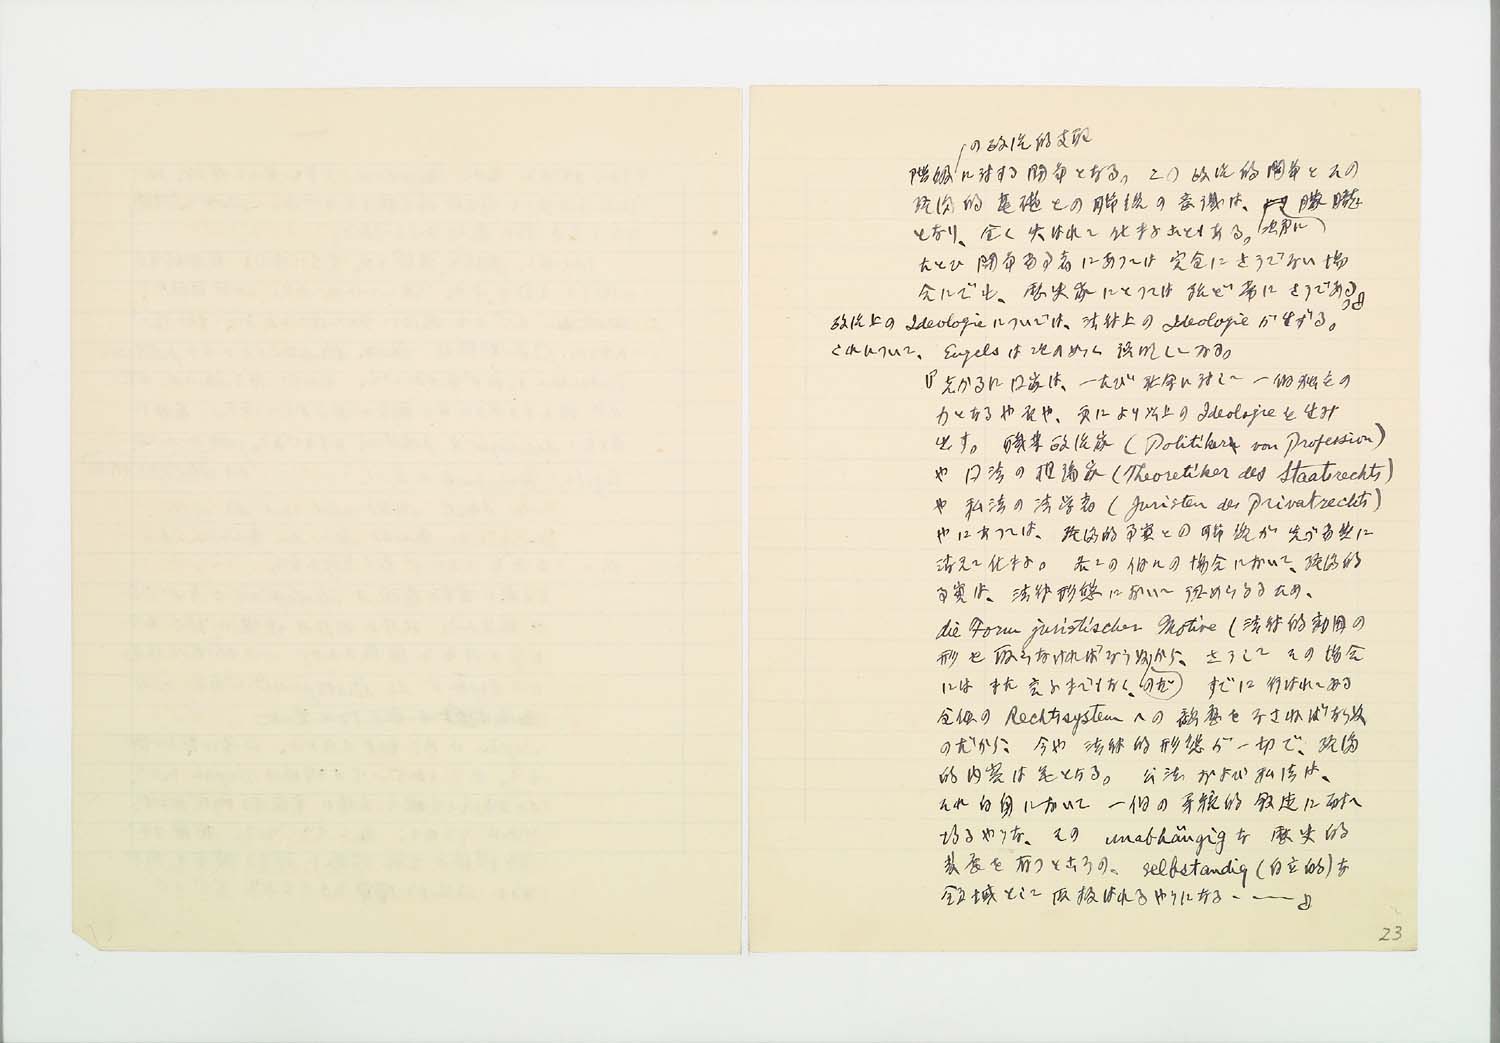 の政治的支配
階級に対する闘争となる。この政治的闘争とその
経済的基礎との聯絡の意識は、朦朧
となり、全く失はれて仕まふこともある。
たとひ闘争当事者にあつては完全にさうでない場
合にでも、歴史家にとつては殆ど常にさうである。』
政治上のIdeologieについでは、法律上のIdeologieが生ずる。
これについて、Engelsは次のやうに説明してゐる。
『然るに国家は、一たび社会に対して一個独立の
力となるや否や、更により以上のIdeologieを生み
出す。職業政治家(Politiker von Profession)
や国法の理論家(Theoretiker des Staatsrechts)
や私法の法学者(Juristen des Privatrechts)
やにあつては、経済的事実との聯絡が
消えて仕まふ。各々の個々の場合において、経済的
事実は、法律形態において認めらるるため、
die Form juristischer Motive(法律的動因の
形を取らなければならぬから、さうしてその場合
にはまた云ふまでもなく、のだ すでに行はれてゐる
全体のRechtssystemへの顧慮をなさねばならぬ
のだから、今や法律的形態が一切で、経済
的内容は無となる。公法および私法は、
それ自身において一個の系統的叙述に耐へ
得るやうな、その unabhängig な歴史的
発展を有つところの、selbständig(自立的)な
領域として取扱はれるやうになる———』
23